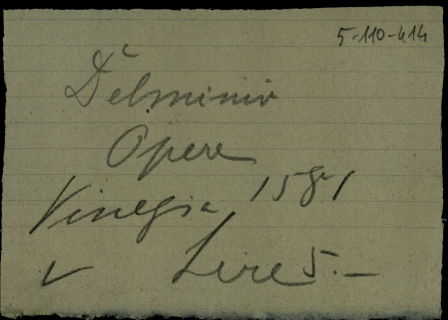 5-110-414
Delminio
Opere
Vinegia 1581
V Lire 5.—